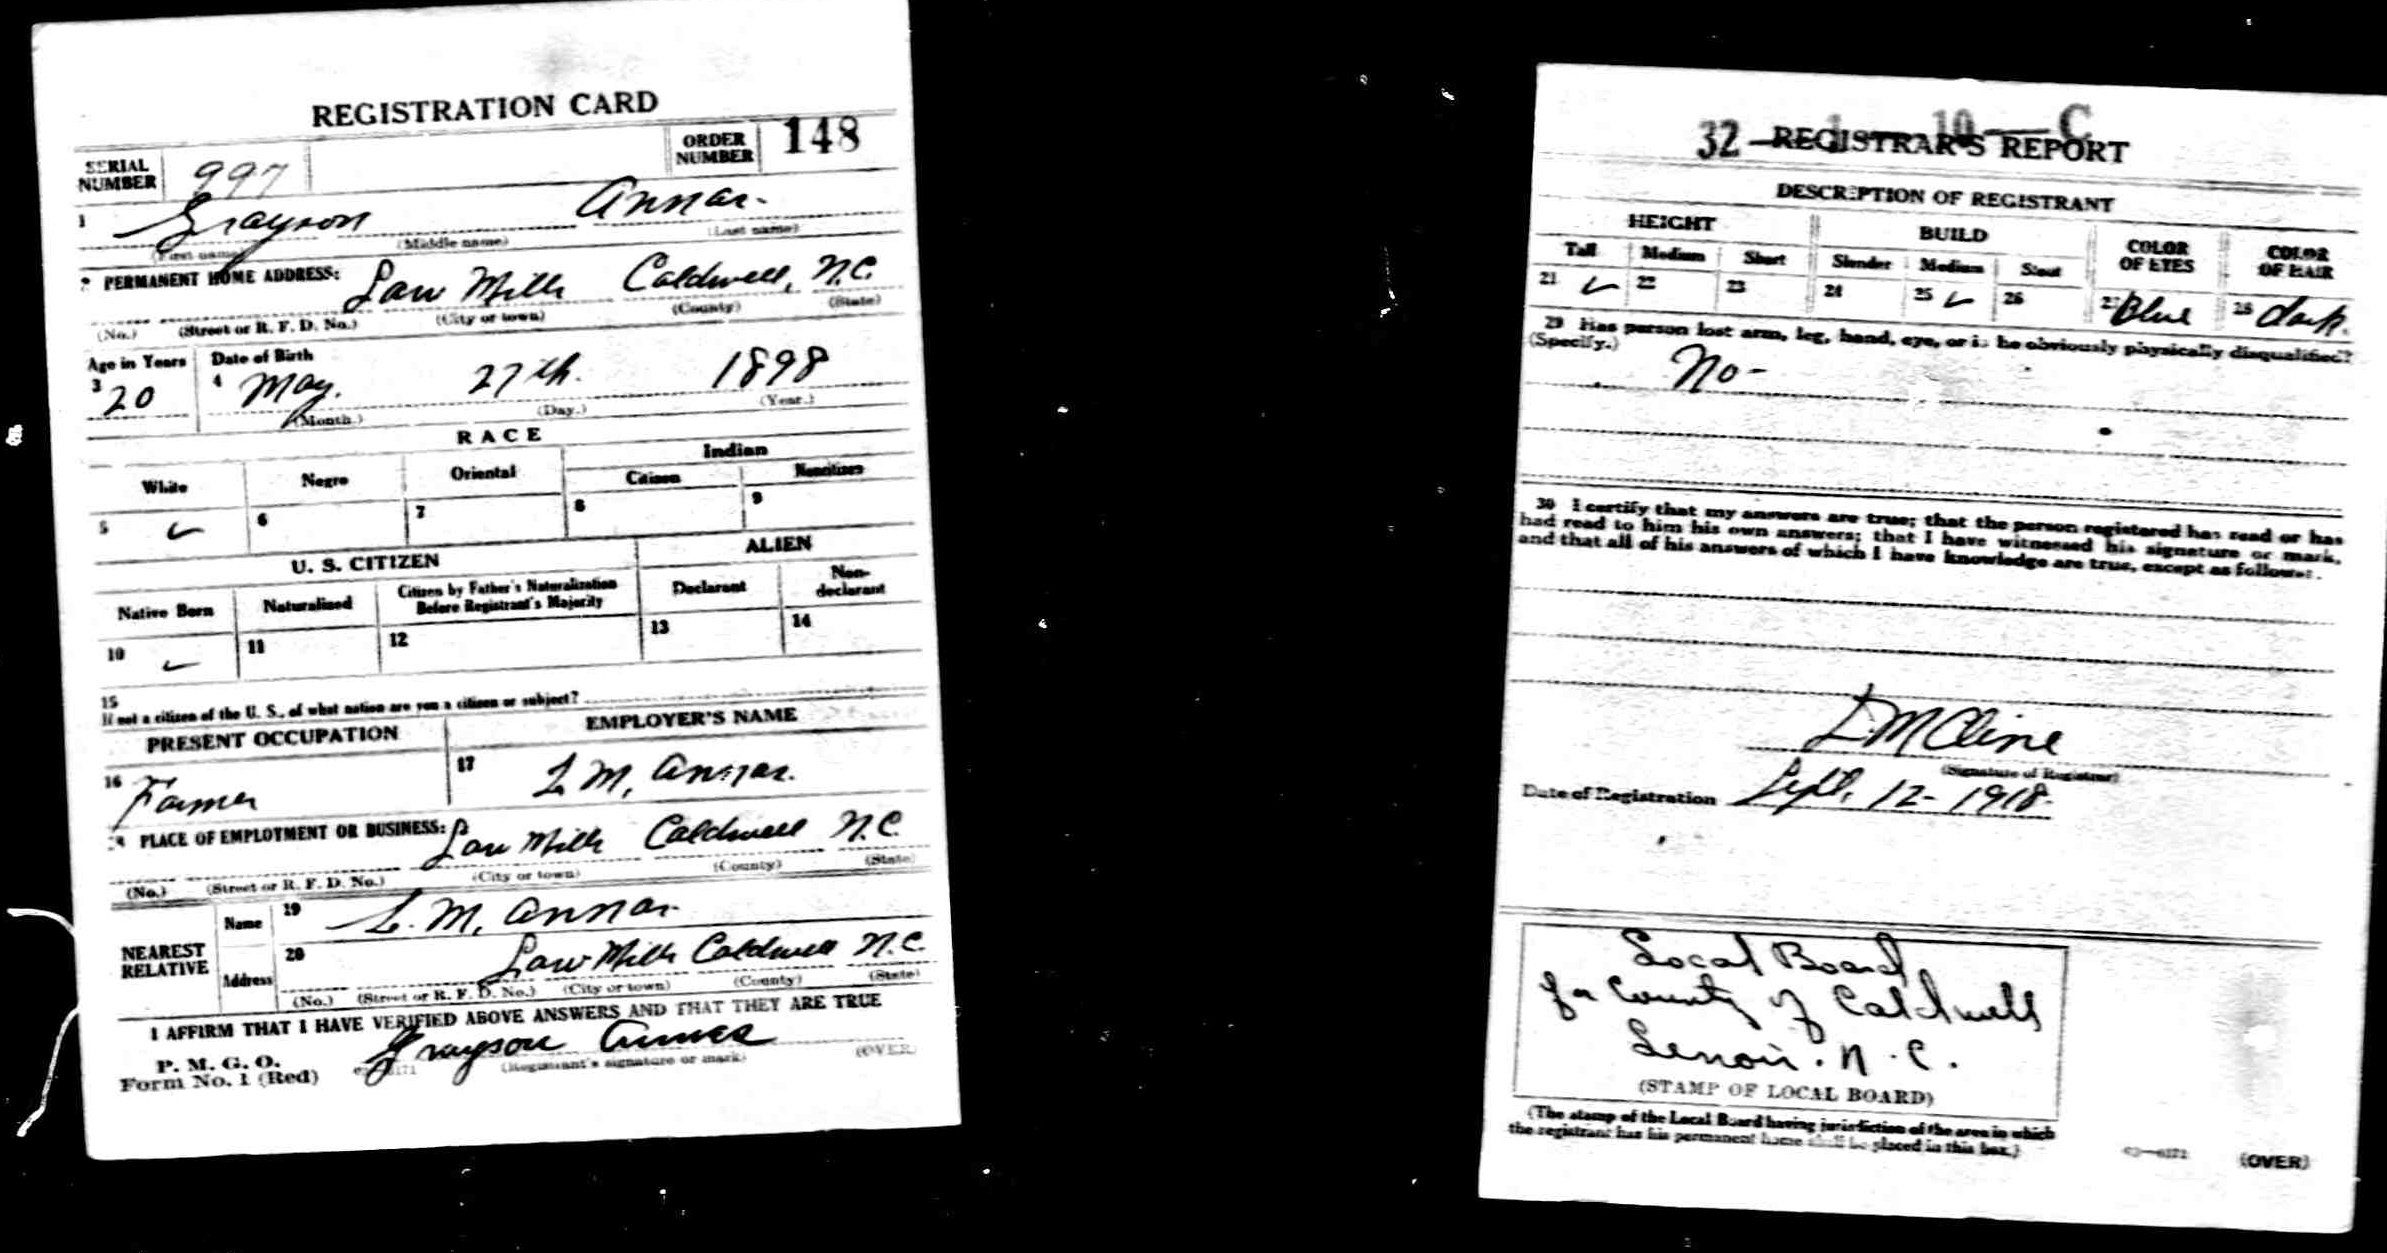 REGISTRATION CARD
SERIAL NUMBER 997 ORDER NUMBER 148
1 Grayson Annas.
(First name) (Middle name) (Last name)
2 PERMANENT HOME ADDRESS: Saw Mills Caldwell, N.C.
(No.) (Street or R. F. D. No.) (City or town) (County) (State)
Age in Years Date of Birth
3 20 4 May. 27th. 1898
(Month.) (Day.) (Year.)
RACE
White Negro Oriental Indian
Citizen Noncitizen
5 ✓ 6 7 8 9
U. S. CITIZEN ALIEN
Native Born Naturalized Citizen by Father's Naturalization Before Registrant's Majority Declarant Non-declarant
10 ✓ 11 12 13 14
15
If not a citizen of the U. S., of what nation are you a citizen or subject?
PRESENT OCCUPATION EMPLOYER'S NAME
16 Farmer 17 L M, Annas.
18 PLACE OF EMPLOYMENT OR BUSINESS: Saw Mills Caldwell N.C.
(No.) (Street or R. F. D. No.) (City or town) (County) (State)
NEAREST RELATIVE Name 19 L. M, Annas.
Address 20 Saw Mills Caldwell N.C.
(No.) (Street or R. F. D. No.) (City or town) (County) (State)
I AFFIRM THAT I HAVE VERIFIED ABOVE ANSWERS AND THAT THEY ARE TRUE
P. M. G. O.
Form No. 1 (Red) Grayson Annas
(Registrant's signature or mark) (OVER)
32—1—10—C
REGISTRAR'S REPORT
DESCRIPTION OF REGISTRANT
HEIGHT BUILD COLOR OF EYES COLOR OF HAIR
Tall Medium Short Slender Medium Stout
21 ✓ 22 23 24 25 ✓ 26 27 Blue 28 dark.
29 Has person lost arm, leg, hand, eye, or is he obviously physically disqualified?
(Specify.) No-
30 I certify that my answers are true; that the person registered has read or has
had read to him his own answers; that I have witnessed his signature or mark,
and that all of his answers of which I have knowledge are true, except as follows:
L M Cline
(Signature of Registrar)
Date of Registration Sept, 12- 1918.
Local Board
for County of Caldwell
Lenoir. N. C.
(STAMP OF LOCAL BOARD)
(The stamp of the Local Board having jurisdiction of the area in which
the registrant has his permanent home shall be placed in this box.)
(OVER)